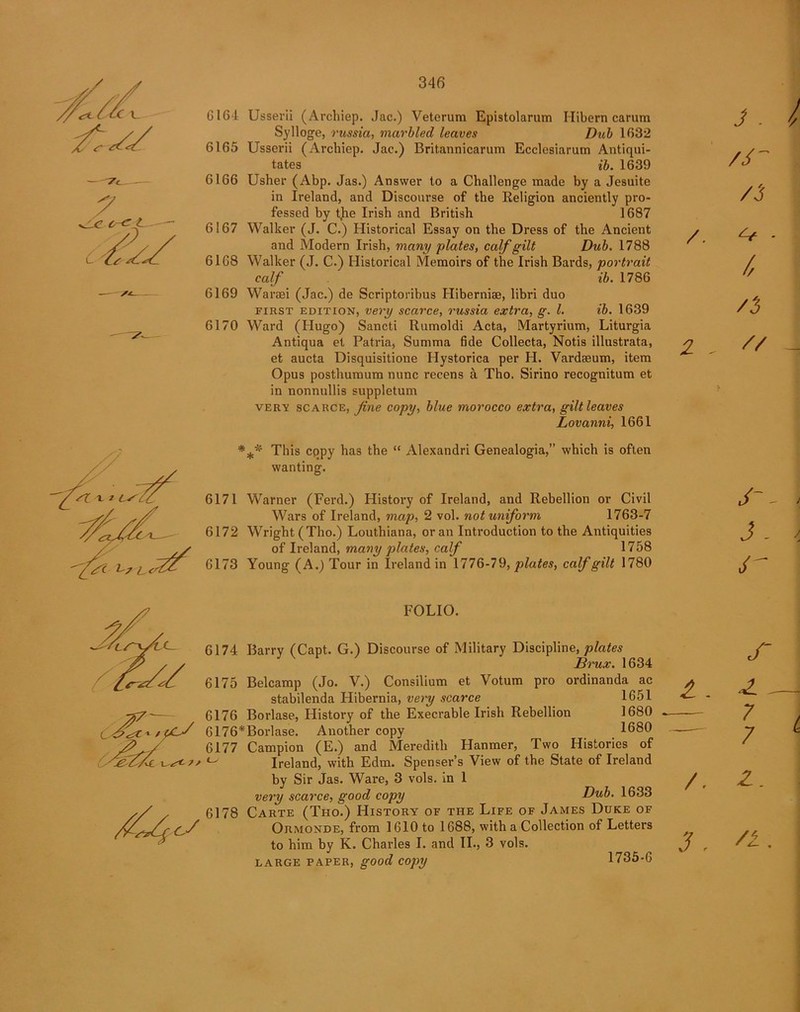 346
6164 Usserii (Archiep. Jac.) Veterum Epistolarum Hibern carum
Sylloge, russia, marbled leaves Dub 1632
3 -
6165 Usserii (Archiep. Jac.) Britannicarum Ecclesiarum Antiqui-
tates ib. 1639
15
6166 Usher (Abp. Jas.) Answer to a Challenge made by a Jesuite
in Ireland, and Discourse of the Religion anciently pro-
fessed by the Irish and British 1687
13
6167 Walker (J. C.) Historical Essay on the Dress of the Ancient
and Modern Irish, many plates, calf gilt Dub. 1788
1. 4 -
6168 Walker (J. C.) Historical Memoirs of the Irish Bards, portrait
calf ib. 1786
6169 Waræi (Jac.) de Scriptoribus Hiberniæ, libri duo
FIRST EDITION, very scarce, russia extra, g. l. ib. 1639
13
6170 Ward (Hugo) Sancti Rumoldi Acta, Martyrium, Liturgia
Antiqua et Patria, Summa fide Collecta, Notis illustrata,
et aucta Disquisitione Hystorica per H. Vardæum, item
Opus posthumum nunc recens à Tho. Sirino recognitum et
in nonnullis suppletum
VERY SCARCE, fine copy, blue morocco extra, gilt leaves
Lovanni, 1661
2 - 11
*** This copy has the “ Alexandri Genealogia,” which is often
wanting.
6171 Warner (Ferd.) History of Ireland, and Rebellion or Civil
Wars of Ireland, map, 2 vol. not uniform 1763-7
5 -
6172 Wright (Tho.) Louthiana, or an Introduction to the Antiquities
of Ireland, many plates, calf 1758
3 -
6173 Young (A.) Tour in Ireland in 1776-79, plates, calf gilt 1780
5
FOLIO.
6174 Barry (Capt. G.) Discourse of Military Discipline, plates
Brux. 1634
5
6175 Belcamp (Jo. V.) Consilium et Votum pro ordinanda ac
stabilenda Hibernia, very scarce 1651
2 - 2
6176 Borlase, History of the Execrable Irish Rebellion 1680
7
6176*Borlase. Another copy 1680
7
6177 Campion (E.) and Meredith Hanmer, Two Histories of
Ireland, with Edm. Spenser's View of the State of Ireland
by Sir Jas. Ware, 3 vols. in 1
very scarce, good copy Dub. 1633
1. 2.
6178 CARTE (THO.) HISTORY OF THE LIFE OF JAMES DUKE OF
ORMONDE, from 1610 to 1688, with a Collection of Letters
to him by K. Charles I. and II., 3 vols.
LARGE PAPER, good copy 1735-6
3. 12.